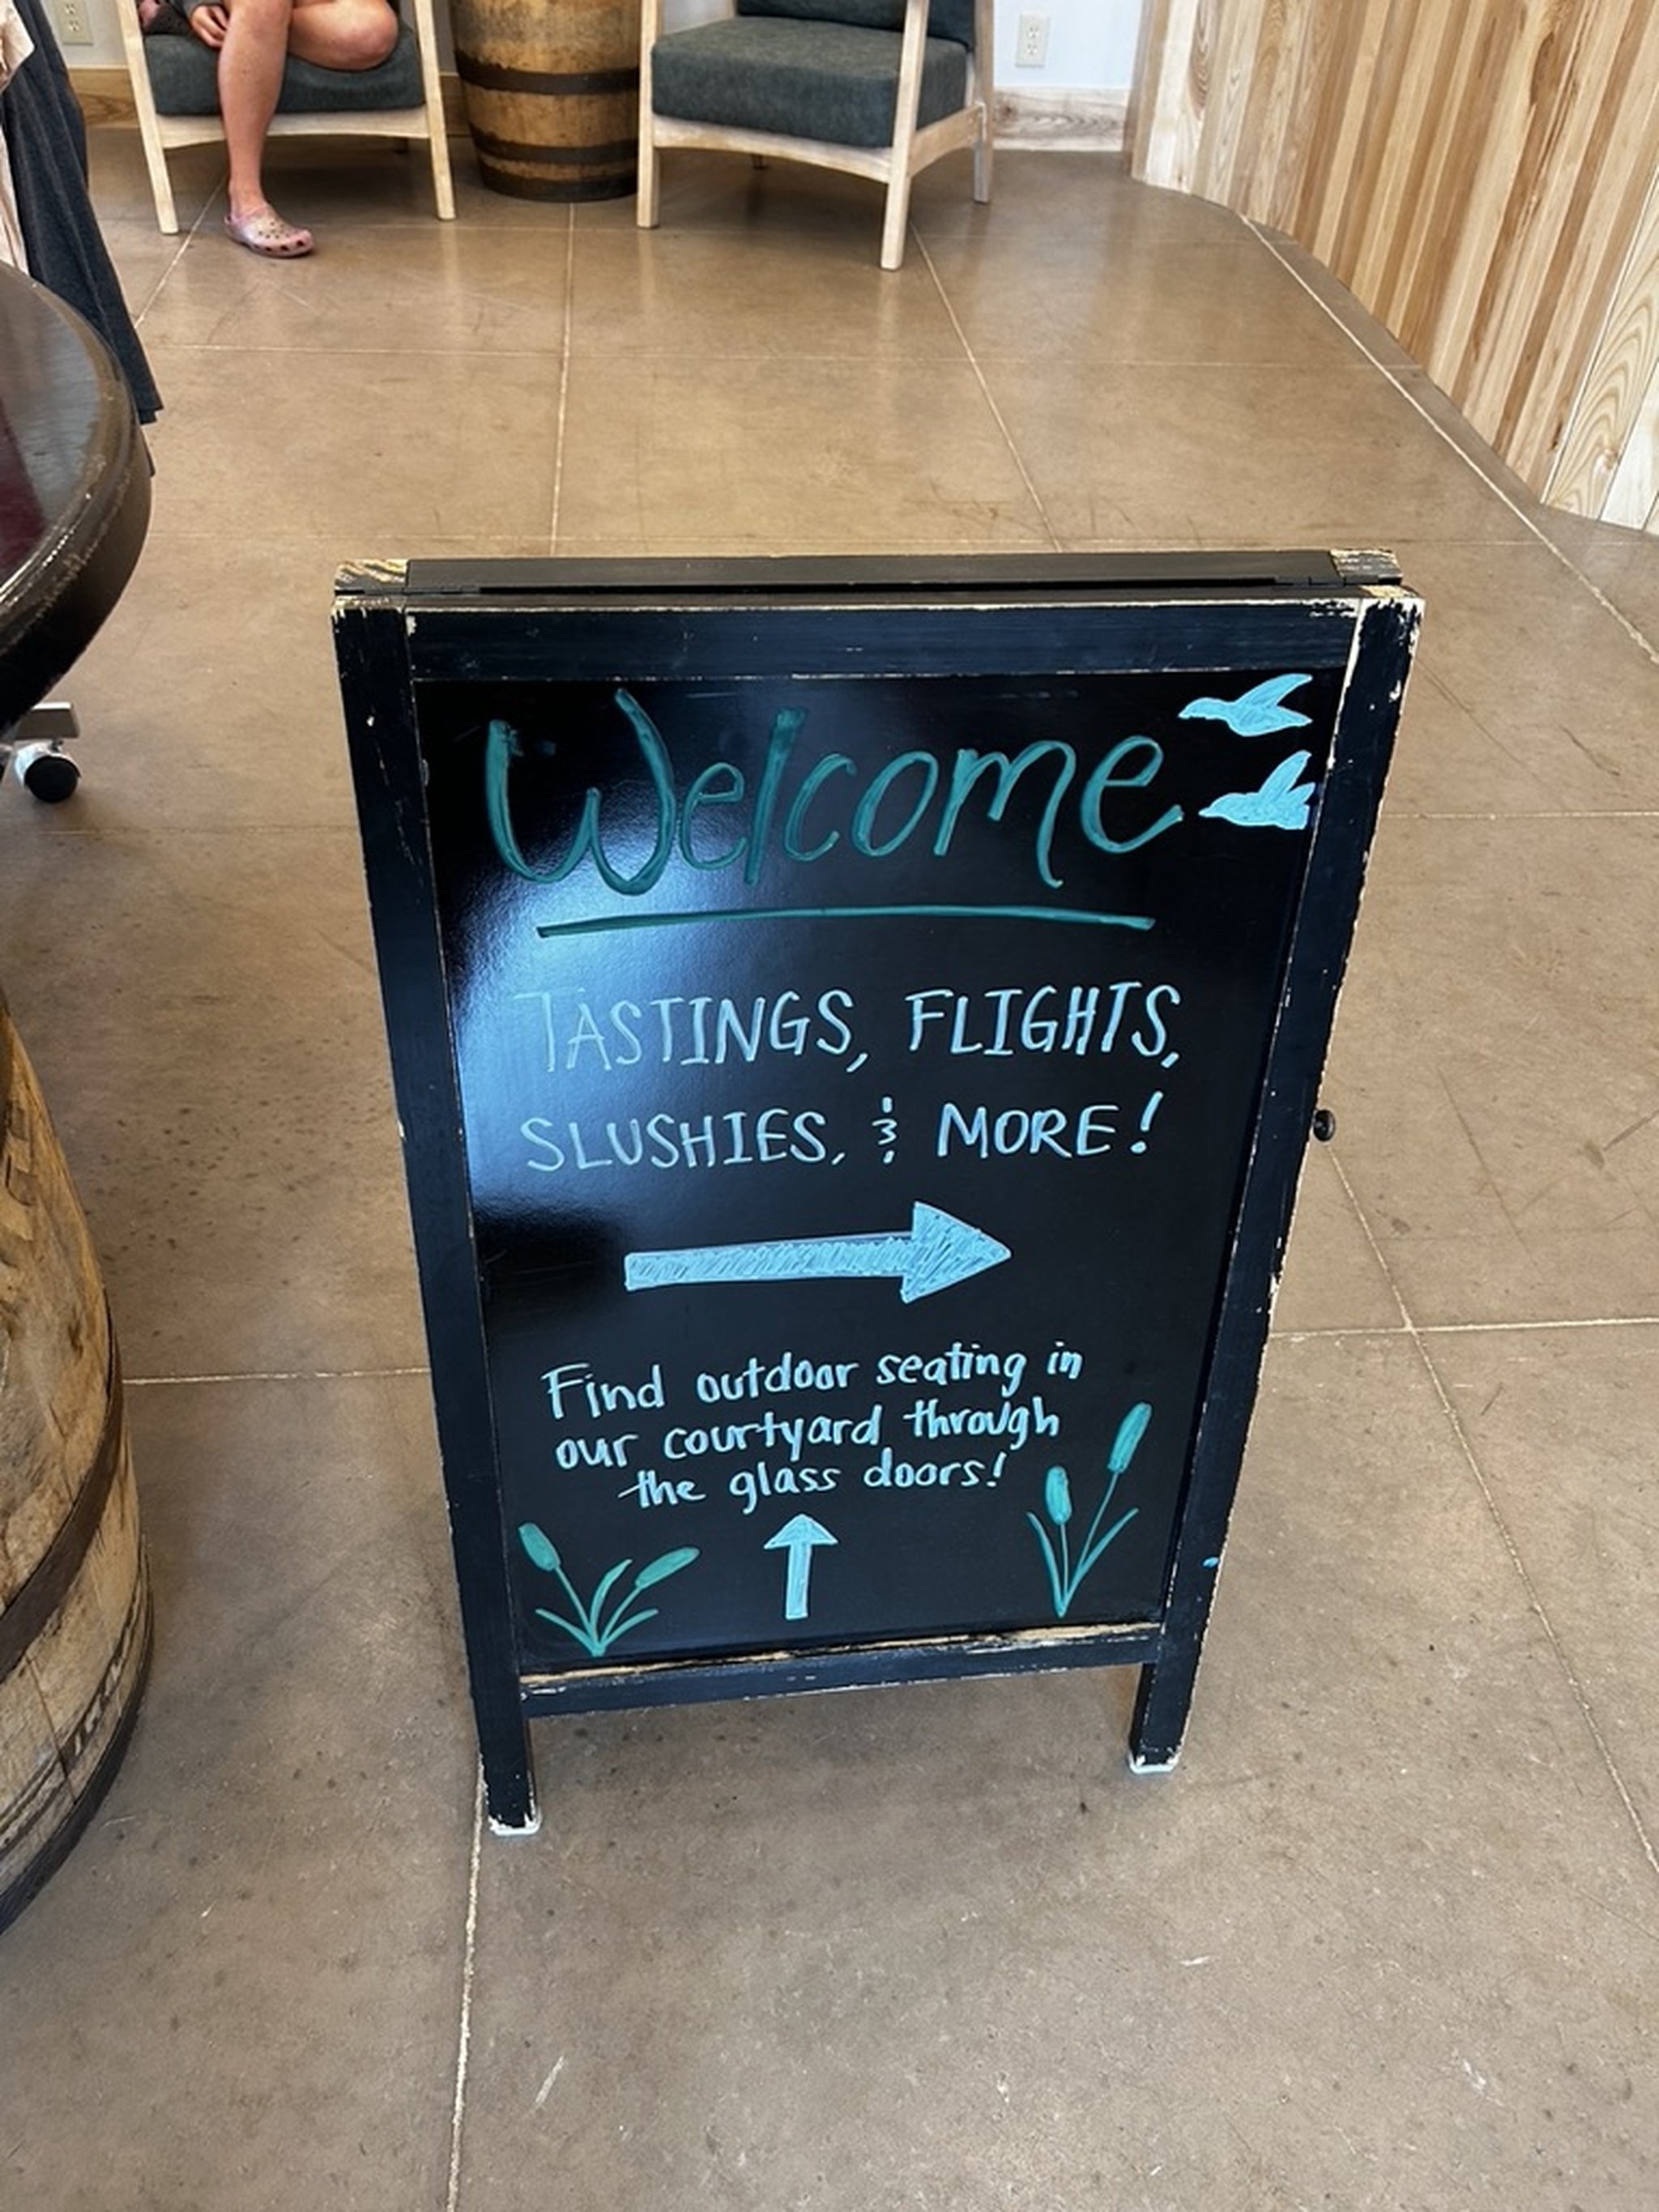 Welcome
TASTINGS, FLIGHTS,
SLUSHIES, & MORE!
Find outdoor seating in
our courtyard through
the glass doors!